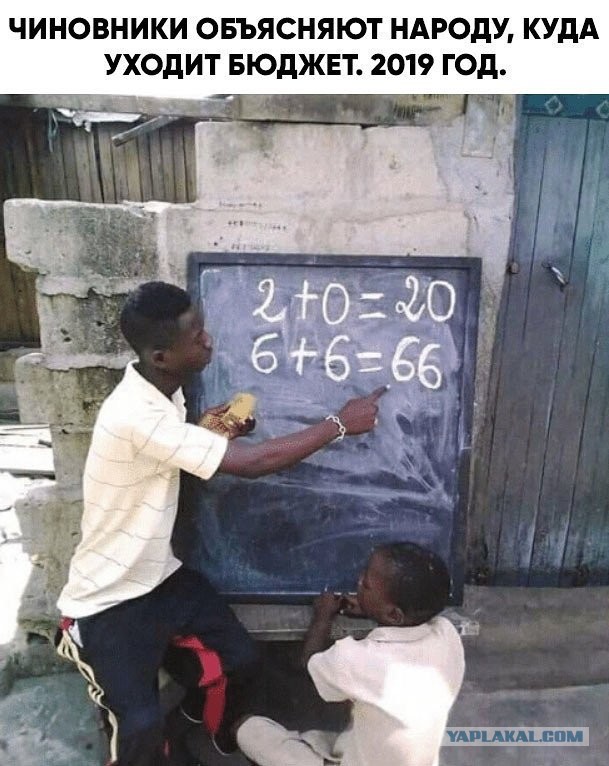 ЧИНОВНИКИ ОБЪЯСНЯЮТ НАРОДУ, КУДА
УХОДИТ БЮДЖЕТ. 2019 ГОД.
2+0=20
6+6=66
YAPLAKAL.COM